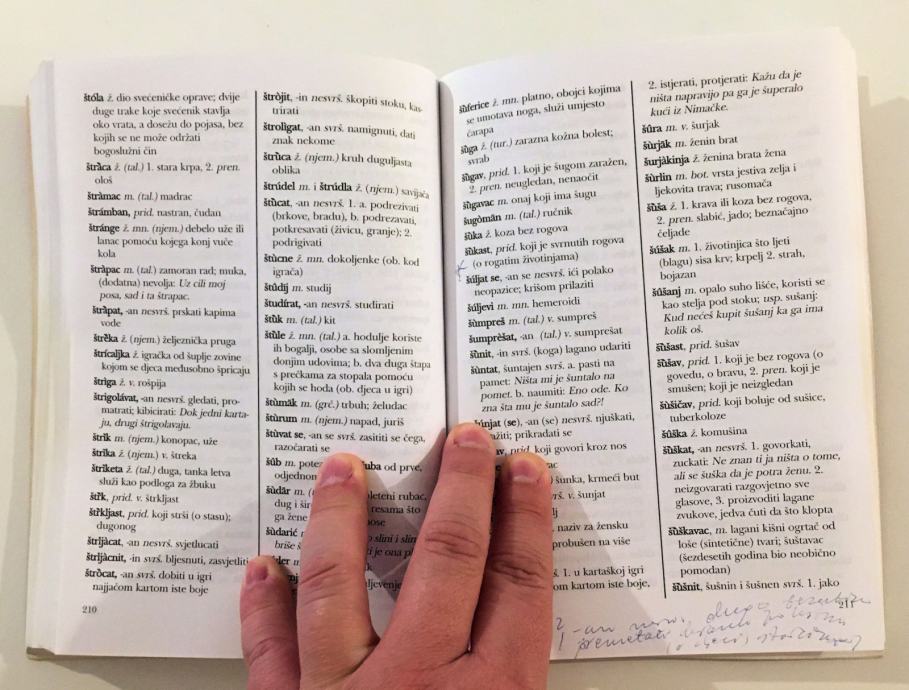 štóla ž. dio svećeničke oprave; dvije
duge trake koje svećenik stavlja
oko vrata, a dosežu do pojasa, bez
kojih se ne može održati
bogoslužni čin
štràca ž. (tal.) 1. stara krpa, 2. pren.
ološ
štràmac m. (tal.) madrac
štrámban, prid. nastran, čudan
štránge ž. mn. (njem.) debelo uže ili
lanac pomoću kojega konj vuče
kola
štràpac m. (tal.) zamoran rad; muka,
(dodatna) nevolja: Uz cili moj
posa, sad i ta štrapac.
štràpat, -an nesvrš. prskati kapima
vode
štrȅka ž. (njem.) željeznička pruga
štrícaljka ž. igračka od šuplje zovine
kojom se djeca međusobno špricaju
štriga ž. v. rošpija
štrigolávat, -an nesvrš. gledati, pro-
matrati; kibicirati: Dok jedni karta-
ju, drugi štrigolavaju.
štrik m. (njem.) konopac, uže
štrika ž. (njem.) v. štreka
štriketa ž. (tal.) duga, tanka letva
služi kao podloga za žbuku
štȑk, prid. v. štrkljast
štȑkljast, prid. koji strši (o stasu);
dugonog
štrljàcat, -an nesvrš. svjetlucati
štrljàcnit, -in svrš. bljesnuti, zasvjetliti
štròcat, -an svrš. dobiti u igri
najjačom kartom iste boje
210
štròjit, -in nesvrš. škopiti stoku, kas-
trirati
štroligat, -an svrš. namignuti, dati
znak nekome
štrùca ž. (njem.) kruh duguljasta
oblika
štrúdel m. i štrúdla ž. (njem.) savijača
štùcat, -an nesvrš. 1. a. podrezivati
(brkove, bradu), b. podrezavati,
potkresavati (živicu, granje); 2.
podrigivati
štùcne ž. mn. dokoljenke (ob. kod
igrača)
štúdij m. studij
študírat, -an nesvrš. studirati
štȕk m. (tal.) kit
štȕle ž. mn. (tal.) a. hodulje koriste
ih bogalji, osobe sa slomljenim
donjim udovima; b. dva duga štapa
s prečkama za stopala pomoću
kojih se hoda (ob. djeca u igri)
štùmãk m. (grč.) trbuh; želudac
štùrum m. (njem.) napad, juriš
štùvat se, -an se svrš. zasititi se čega,
razočarati se
šúb m. uba od prve,
odjednom
šùdãr m. pleteni rubac,
dug i resama što
ga žene nose
šùdarić m. o slini i slin
briše i je ona pl
šȕferice ž. mn. platno, obojci kojima
se umotava noga, služi umjesto
čarapa
šȕga ž. (tur.) zarazna kožna bolest;
svrab
šȕgav, prid. 1. koji je šugom zaražen,
2. pren. neugledan, nenaočit
šȕgavac m. onaj koji ima šugu
šugòmãn m. (tal.) ručnik
šȕka ž. koza bez rogova
šȕkast, prid. koji je svrnutih rogova
(o rogatim životinjama)
šúljat se, -an se nesvrš. ići polako
neopazice; krišom prilaziti
šúljevi m. mn. hemeroidi
šùmpreš m. (tal.) v. sumpreš
šumprèšat, -an (tal.) v. sumprešat
šùnit, -in svrš. (koga) lagano udariti
šùntat, šuntajen svrš. a. pasti na
pamet: Ništa mi je šuntalo na
pomet. b. naumiti: Eno ode. Ko
zna šta mu je šuntalo sad?!
šúnjat (se), -an (se) nesvrš. njuškati,
prikradati se
prid. koji govori kroz nos
šunka, krmeći but
svrš. v. šunjat
naziv za žensku
probušen na više
1. u kartaškoj igri
om kartom iste boje,
2. istjerati, protjerati: Kažu da je
ništa napravijo pa ga je šuperalo
kući iz Nimačke.
šȕra m. v. šurjak
šùrjãk m. ženin brat
šurjàkinja ž. ženina brata žena
šùrlin m. bot. vrsta jestiva zelja i
ljekovita trava; rusomača
šùša ž. 1. krava ili koza bez rogova,
2. pren. slabić, jado; beznačajno
čeljade
šúšak m. 1. životinjica što ljeti
(blagu) sisa krv; krpelj 2. strah,
bojazan
šùšanj m. opalo suho lišće, koristi se
kao stelja pod stoku; usp. sušanj:
Kud nećeš kupit šušanj ka ga ima
kolik oš.
šȕšast, prid. šušav
šȕšav, prid. 1. koji je bez rogova (o
govedu, o bravu, 2. pren. koji je
smušen; koji je neizgladan
šùšičav, prid. koji boluje od sušice,
tuberkoloze
šȕška ž. komušina
šùškat, -an nesvrš. 1. govorkati,
zuckati: Ne znan ti ja ništa o tome,
ali se šuška da je potra ženu. 2.
neizgovarati razgovjetno sve
glasove, 3. proizvoditi lagane
zvukove, jedva čuti da što klopta
šȕškavac, m. lagani kišni ogrtač od
loše (sintetične) tvari; šuštavac
(šezdesetih godina bio neobično
pomodan)
šȕšnit, šušnin i šušnen svrš. 1. jako
211